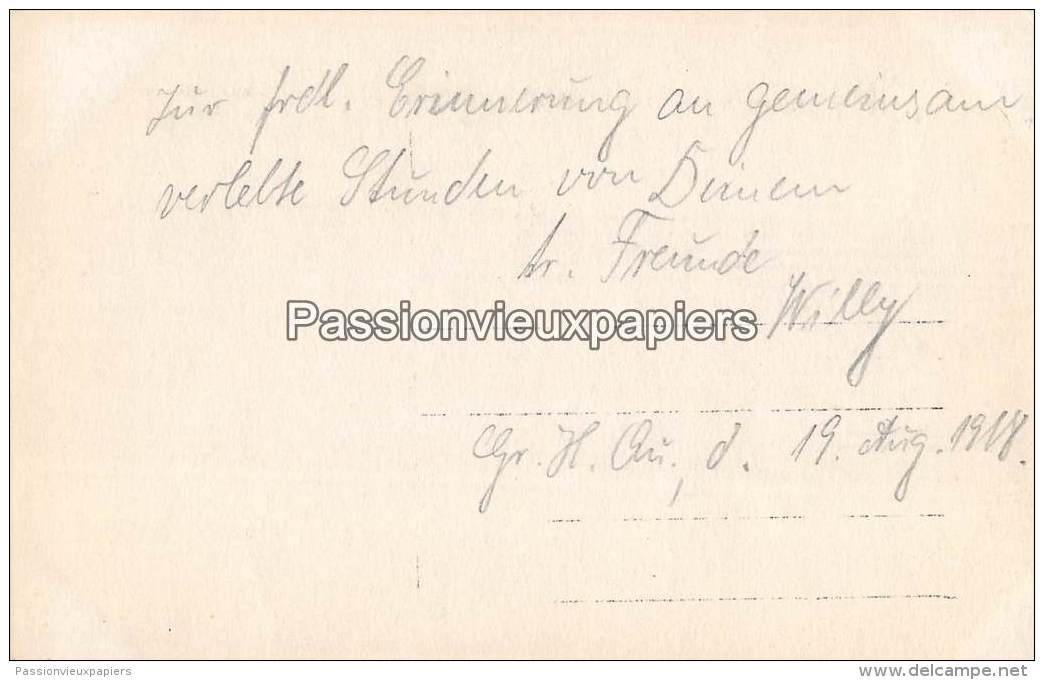 Zur frdl. Erinnerung an gemeinsam
verlebte Stunden von Deinem
tr. Freunde
Willy
Passionvieuxpapiers
Gr. H. Qu., d. 19. Aug. 1918.
Passionvieuxpapiers
delcampe.net